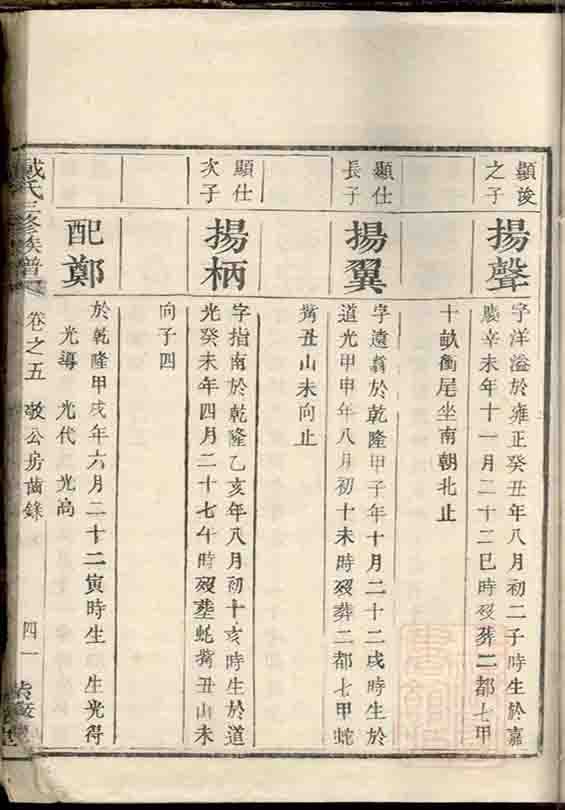 顯浚
之子
揚聲
字洋溢於雍正癸丑年八月初二子時生於嘉
慶辛未年十一月二十二巳時殁葬二都七甲
十畝衝尾坐南朝北止
顯仕
長子
揚翼
字遠翥於乾隆甲子年十月二十二戌時生於
道光甲申年八月初十未時殁葬二都七甲蛇
嘴丑山未向止
顯仕
次子
揚柄
字指南於乾隆乙亥年八月初十亥時生於道
光癸未年四月二十七午時殁塟蛇嘴丑山未
向子四
配鄭
於乾隆甲戌年六月二十二寅時生 生光得
光導 光代 光高
戴氏三修族譜 卷之五 敬公房齒錄 四一